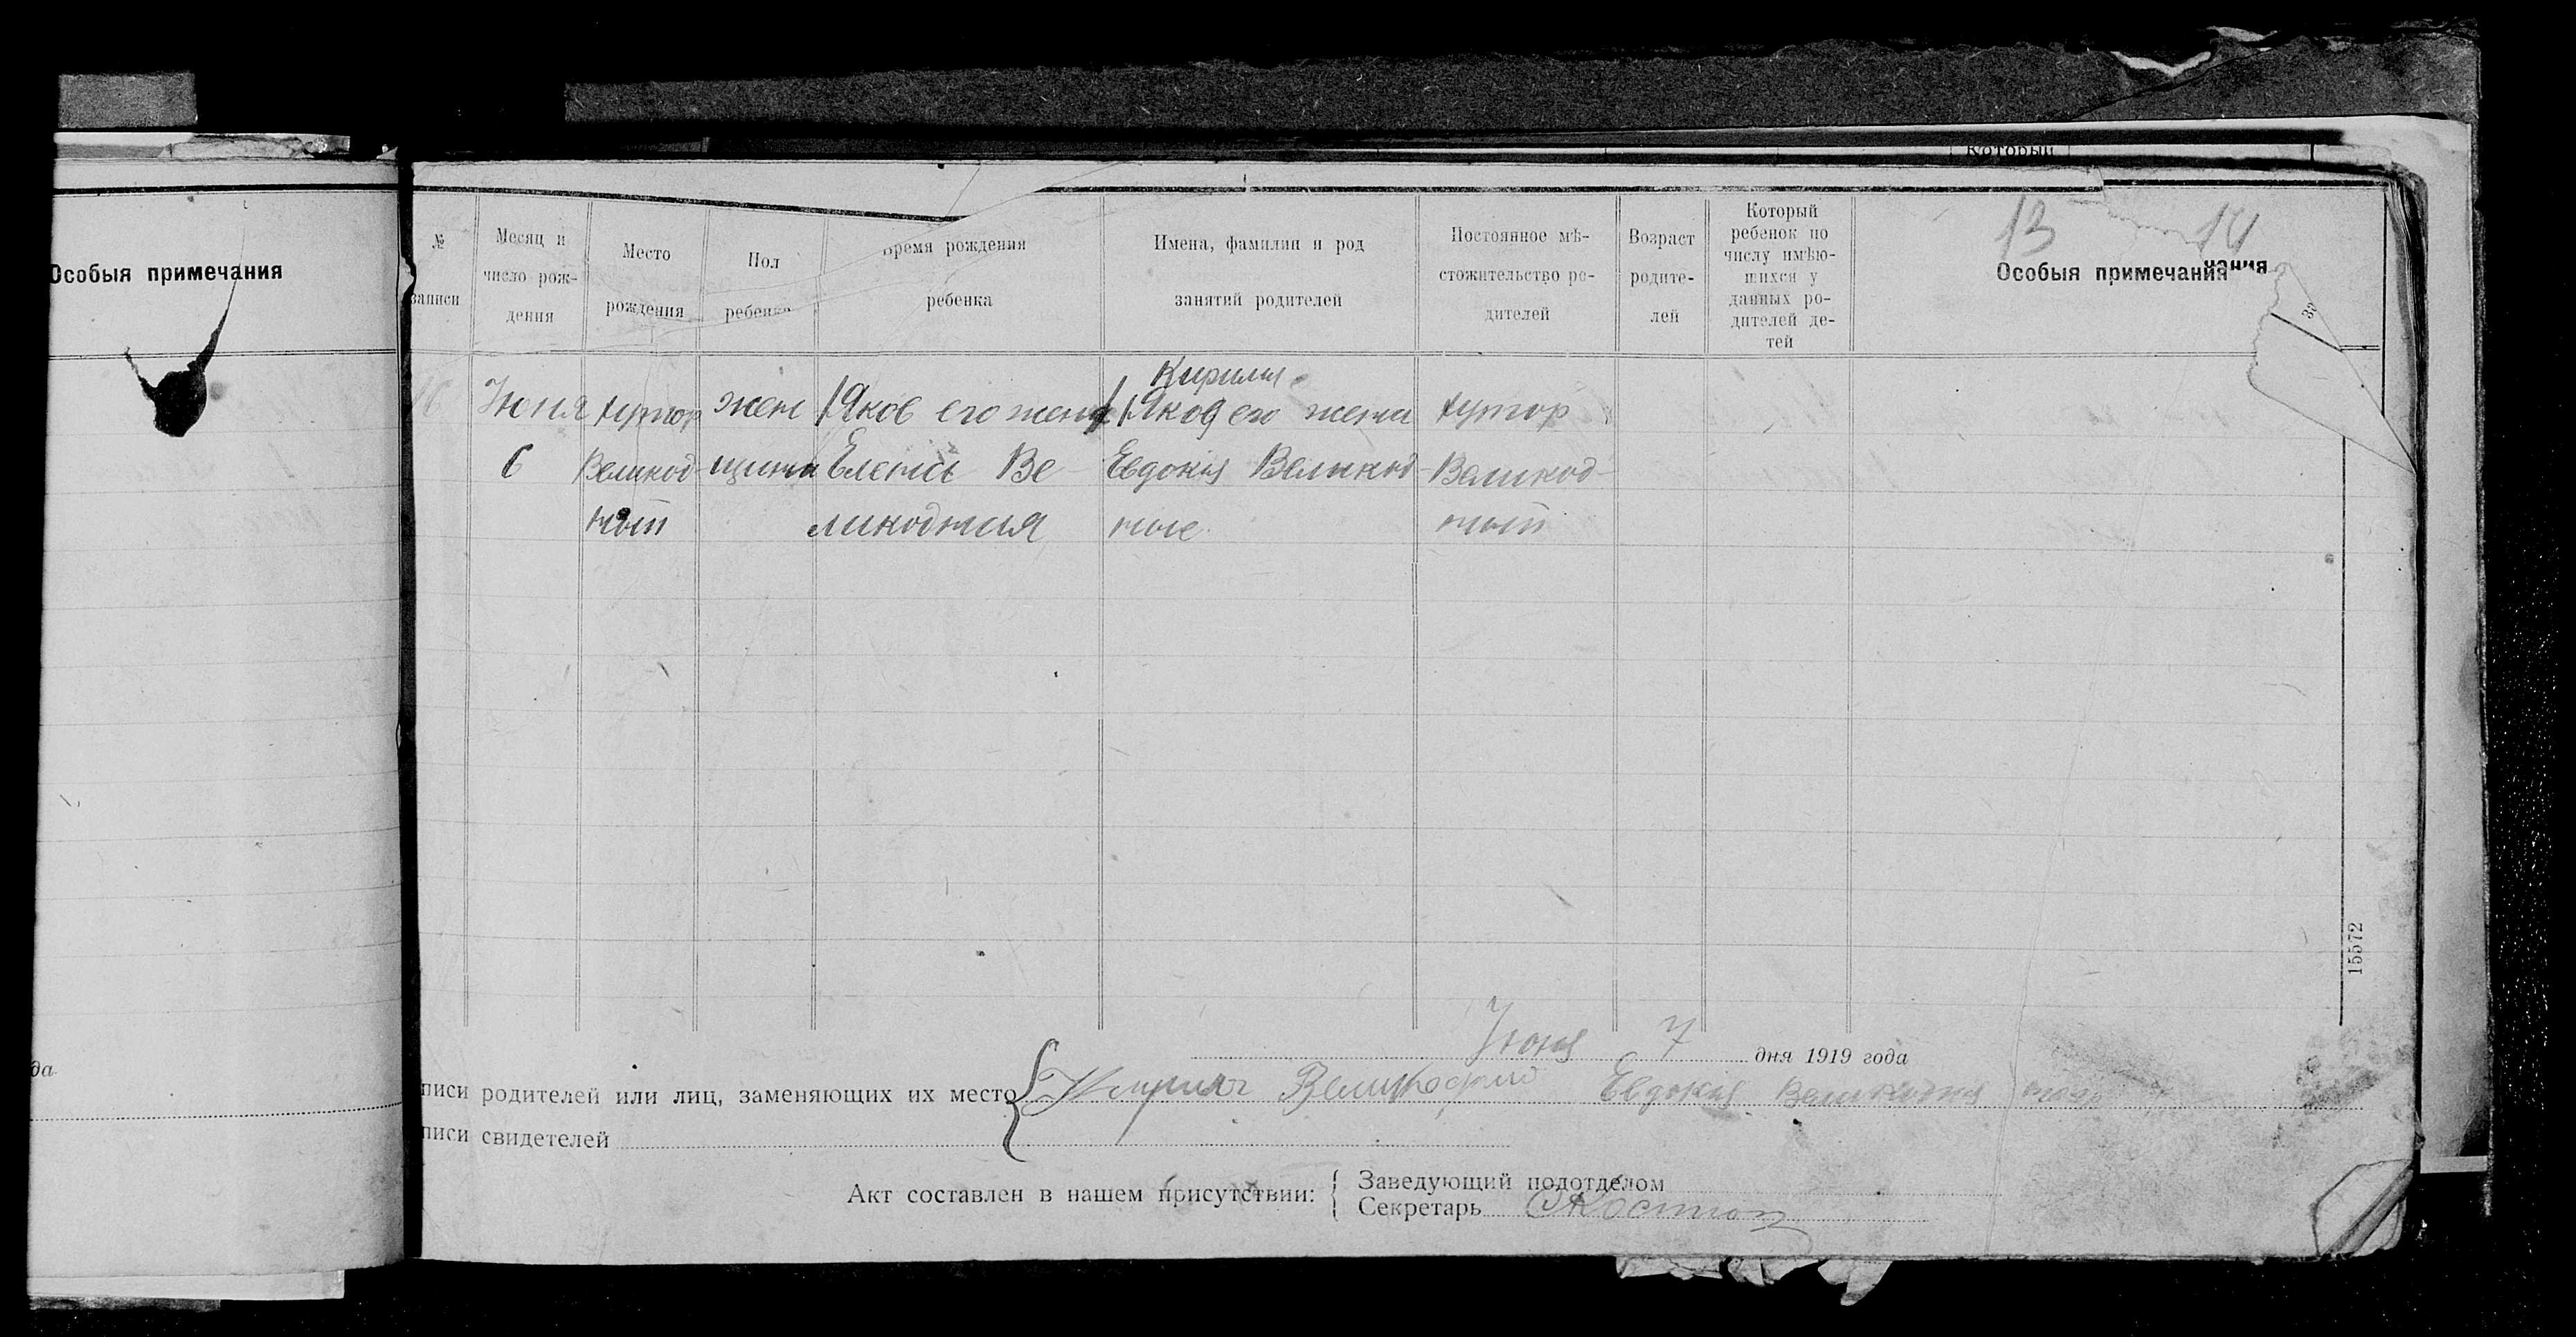 Который
Особыя примечания
№ записи
Месяц и число рождения
Место рождения
Пол ребенка
Время рождения ребенка
Имена, фамилии и род занятий родителей
Постоянное мѣстожительство родителей
Возраст родителей
Который ребенок по числу имѣющихся у данных родителей детей
13 14
Особыя примечания
Кирилл
Июня хутор жен Яков его жена Яков его жена хутор
6 Великод щина Елена Ве Евдокия Великод Великод
ный ликодная ные ный
15572
да
Июня 7 дня 1919 года
писи родителей или лиц, заменяющих их место Кирилл Евдокия
писи свидетелей
Акт составлен в нашем присутствии:
Заведующий подотделом
Секретарь